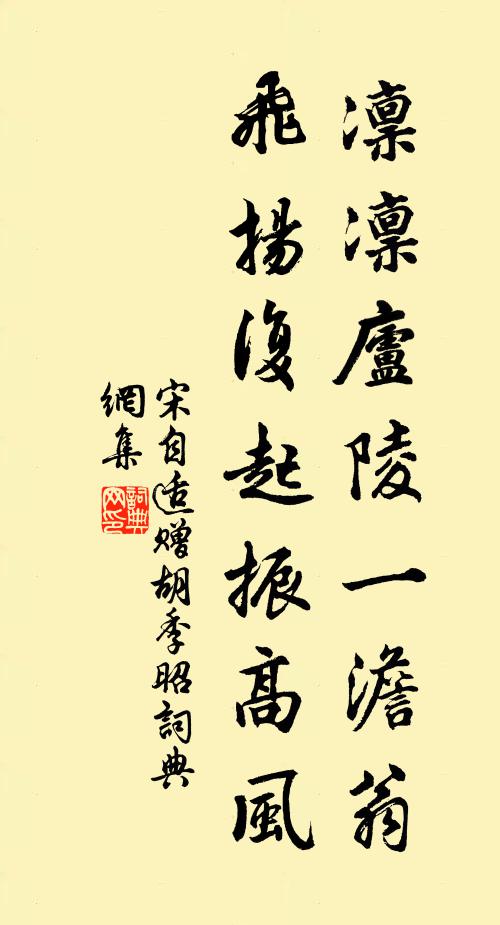 凜凜廬陵一澹翁
飛揚復起振高風
宋自适贈胡季昭詞典
網集
詞典網印